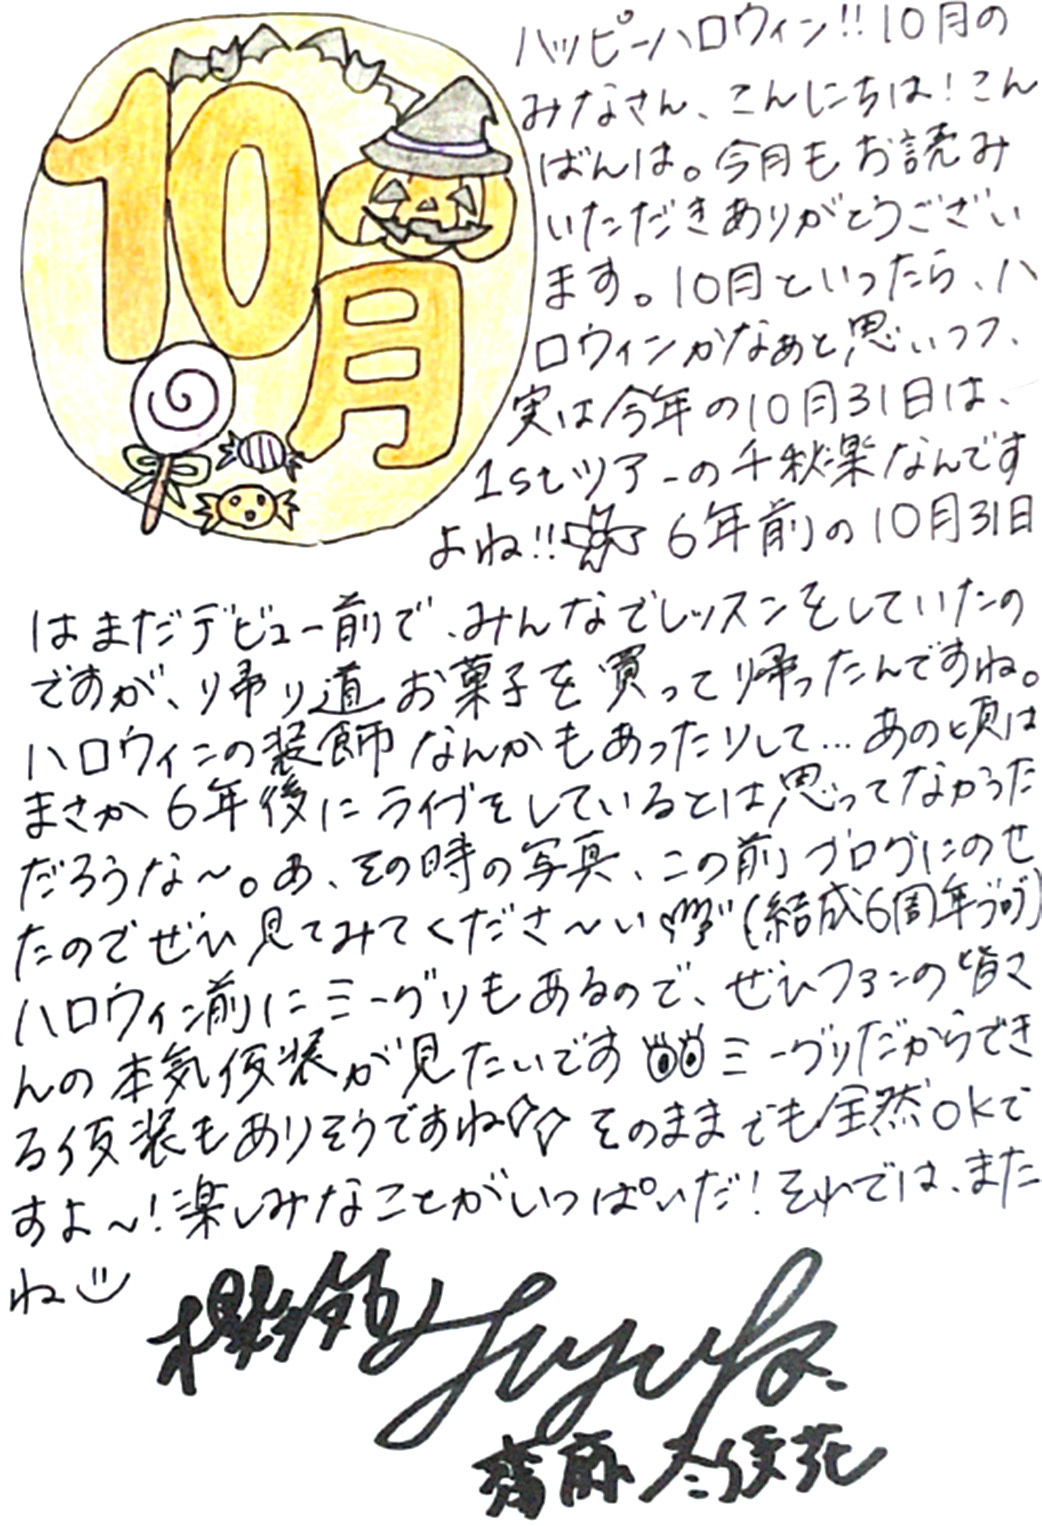 10月
ハッピーハロウィン!!10月の
みなさん、こんにちは!こん
ばんは。今月もお読み
いただきありがとうござい
ます。10月といったら、ハ
ロウィンかなぁと思いつつ、
実は今年の10月31日は、
1stツアーの千秋楽なんです
よね!! 6年前の10月31日
はまだデビュー前で、みんなでレッスンをしていたの
ですが、帰り道お菓子を買って帰ったんですね。
ハロウィンの装飾なんかもあったりして…あの頃は
まさか6年後にライブをしているとは思ってなかった
だろうな〜。あ、その時の写真、この前ブログにのせ
たのでぜひ見てみてくださ〜い(結成6周年ブログ)
ハロウィン前にミーグリもあるので、ぜひファンの皆さ
んの本気仮装が見たいです ミーグリだからでき
る仮装もありそうですね☆☆ そのままでも全然OKで
すよ〜!楽しみなことがいっぱいだ!それでは、また
ね
冬優花